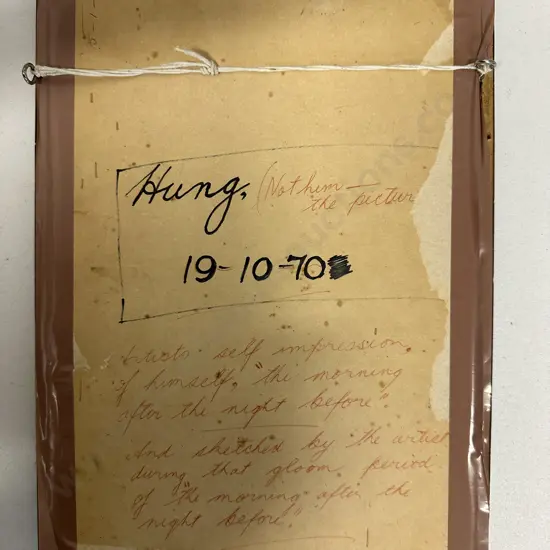 Hung. (Not him —
the pictur
19-10-70
self impression
of himself. "the morning
after the night before".
And sketched by the artist
during that gloom period
of "the morning after the
night before."